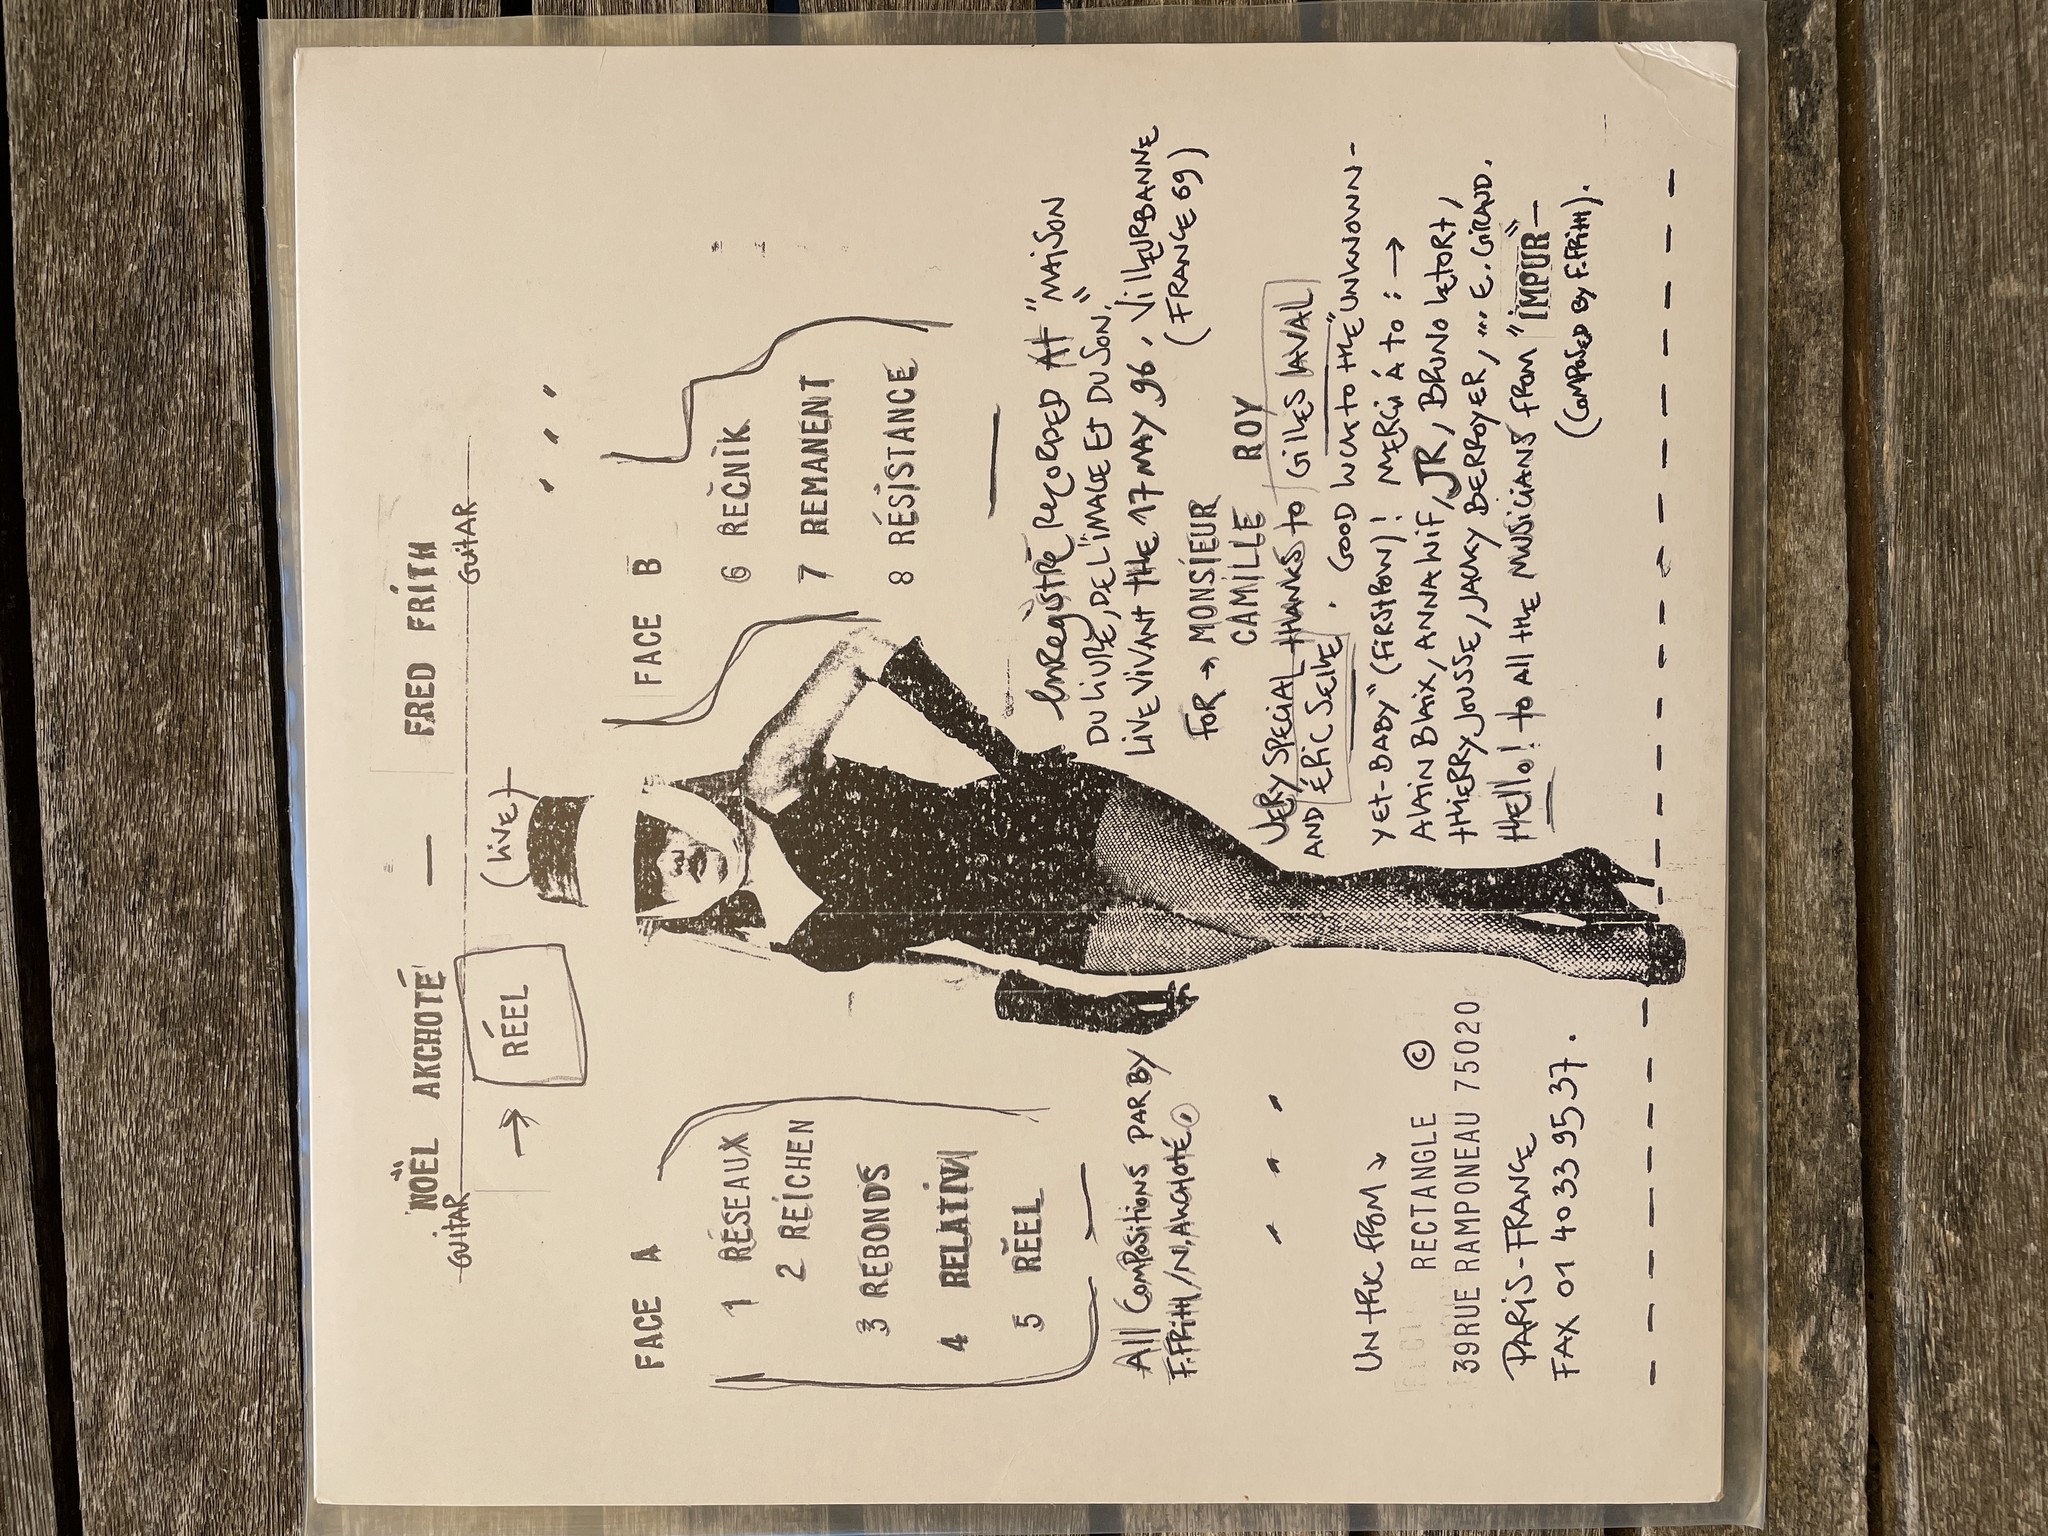 NOËL AKCHOTÉ — FRED FRITH
GUITAR GUITAR
→ RÉEL (LIVE)
FACE A
1 RÉSEAUX
2 REICHEN
3 REBONDS
4 RELATIV
5 RÉEL
All COMPOSITIONS PAR BY
F.FRITH/N.AKCHOTÉ.
FACE B
6 REČNIK
7 REMANENT
8 RÉSISTANCE
ENREGISTRÉ RECORDED At "MAISON
DU LIVRE, DE L'IMAGE Et DU SON,"
LIVE VIVANT tHE 17 MAY 96, VillEURBANNE
(FRANCE 69)
FOR → MONSIEUR
CAMILLE ROY
VERY SPECIAL tHANKS to GillES LAVAL
AND ÉRIC SEILLE. GOOD LUCK to tHE "UNKNOWN-
YET-BABY" (FIRSTBOWN)! MERCI À to : →
ALAIN BLAIX, ANNA WIF, JR, BRUNO LETORT,
tHIERRY JOUSSE, JACKY BERROYER, ... E. GIRAUD.
HEllo! to All tHE MUSICIANS FROM "IMPUR"—
(COMPOSED BY F.FRItH).
UN tRUC FROM ↘
RECTANGLE ©
39 RUE RAMPONEAU 75020
PARIS-FRANCE
FAX 01 40 33 95 37.